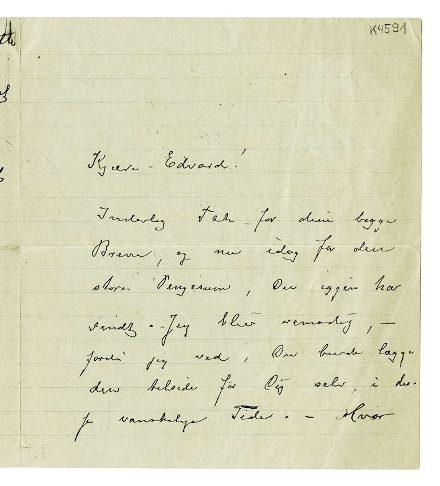 K4591
Kjære Edvard!
Inderlig Tak for dine begge
Breve, og nu idag for den
store Pengesum, Du iggen har
sendt. Jeg blev vemodig, —
fordi jeg ved, Du burde lægge
den tilside for Dig selv, i dis-
se vanskelige Tider. — Hvor